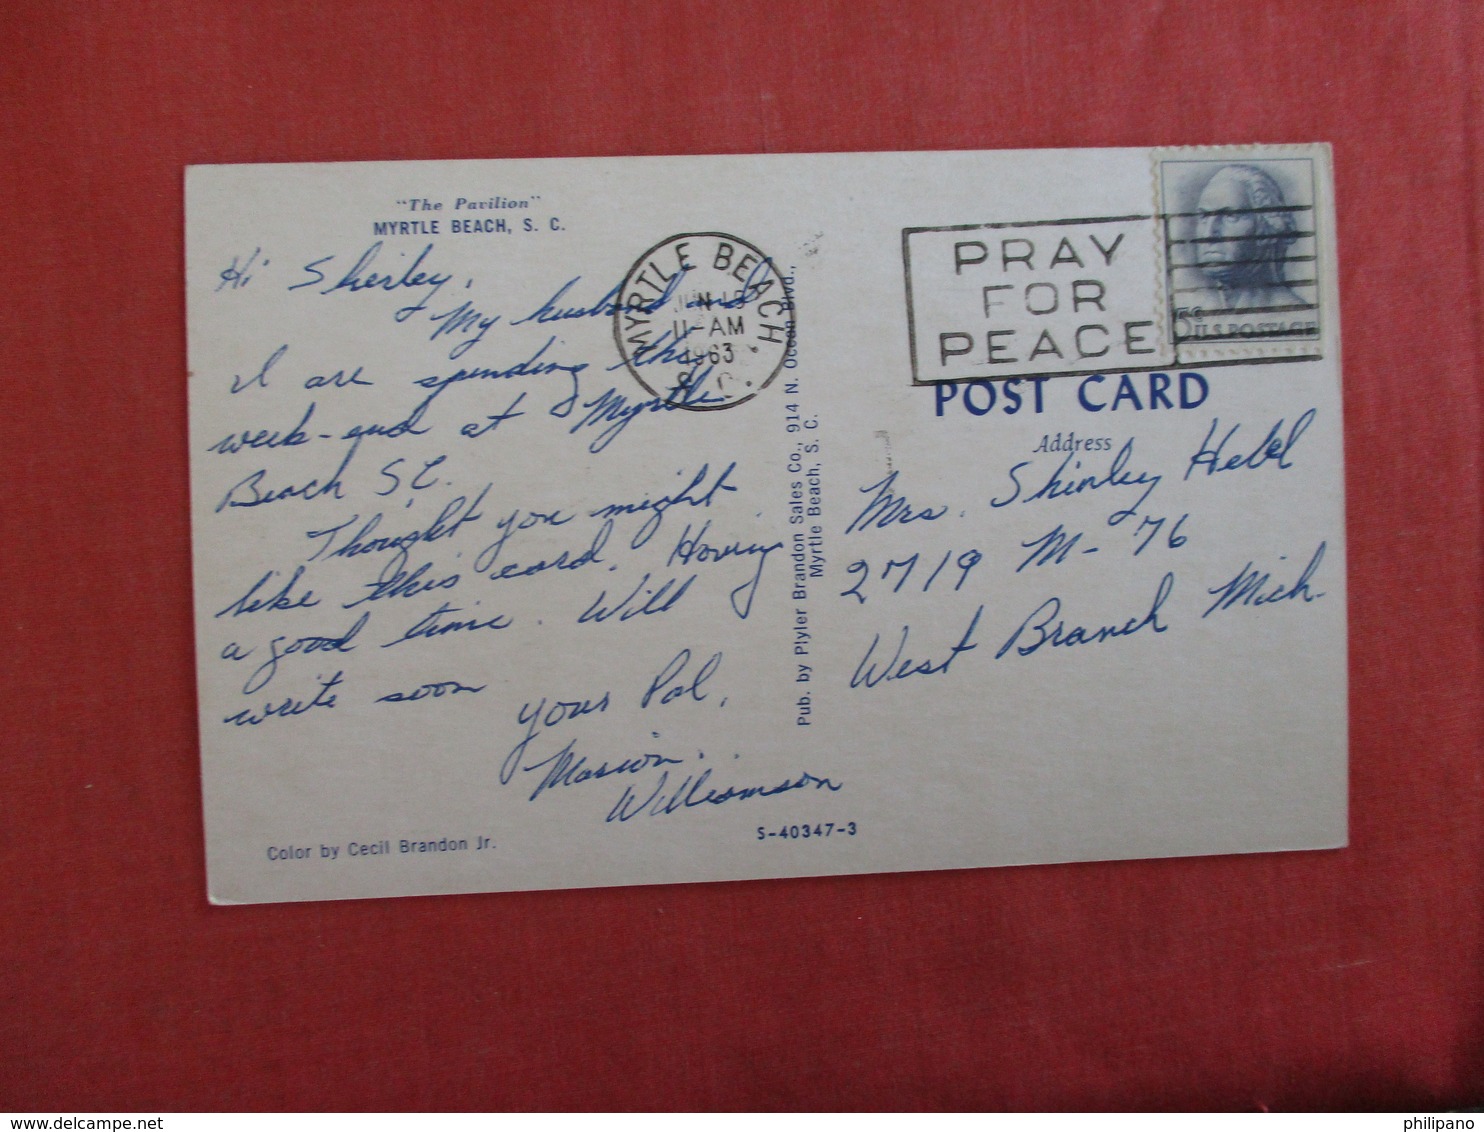 "The Pavilion"
MYRTLE BEACH, S. C.
Hi Sherley,
My husband and
I are spending this
week-end at Myrtle
Beach S.C.
Thought you might
like this card. Having
a good time. Will
write soon
Your Pal,
Marion
Williamson
Color by Cecil Brandon Jr.
S-40347-3
MYRTLE BEACH,
JUN
11-AM
1963
S. C.
Pub. by Plyler Brandon Sales Co., 914 N. Ocean Blvd.,
Myrtle Beach, S. C.
PRAY
FOR
PEACE
5¢ U.S. POSTAGE
POST CARD
Address
Mrs. Shirley
2719 M-76
West Branch Mich.
philipano
delcampe.net